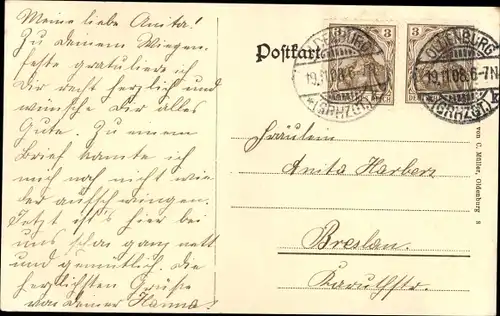 Meine liebe Anita!
Zu Deinem Wiegen-
feste gratuliere ich
Dir recht herzlich und
wünsche Dir alles
Gute. Zu einem
Brief konnte ich
mich noch nicht wie-
der aufschwingen.
Jetzt ist's hier bei
uns schon ganz nett
und gemütlich. Die
herzlichsten Grüße
von Deiner Hanna.
Postkarte
OLDENBURG
19.11.08. 6-7N
*(GRHZGT.)
3
OLDENBURG
19.11.08. 6-7N
*(GRHZGT.)
3
Fräulein
Anita Harbers
Breslau.
von C. Müller, Oldenburg